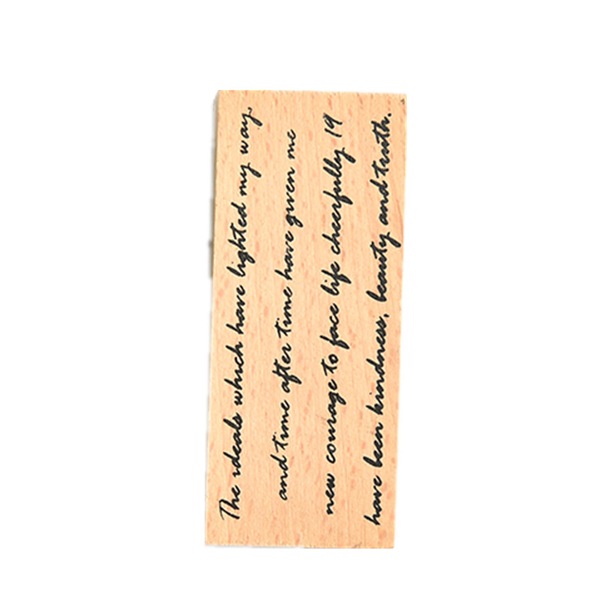 The ideals which have lighted my way,
and time after time have given me
new courage to face life cheerfully 19
have been kindness, beauty and truth.